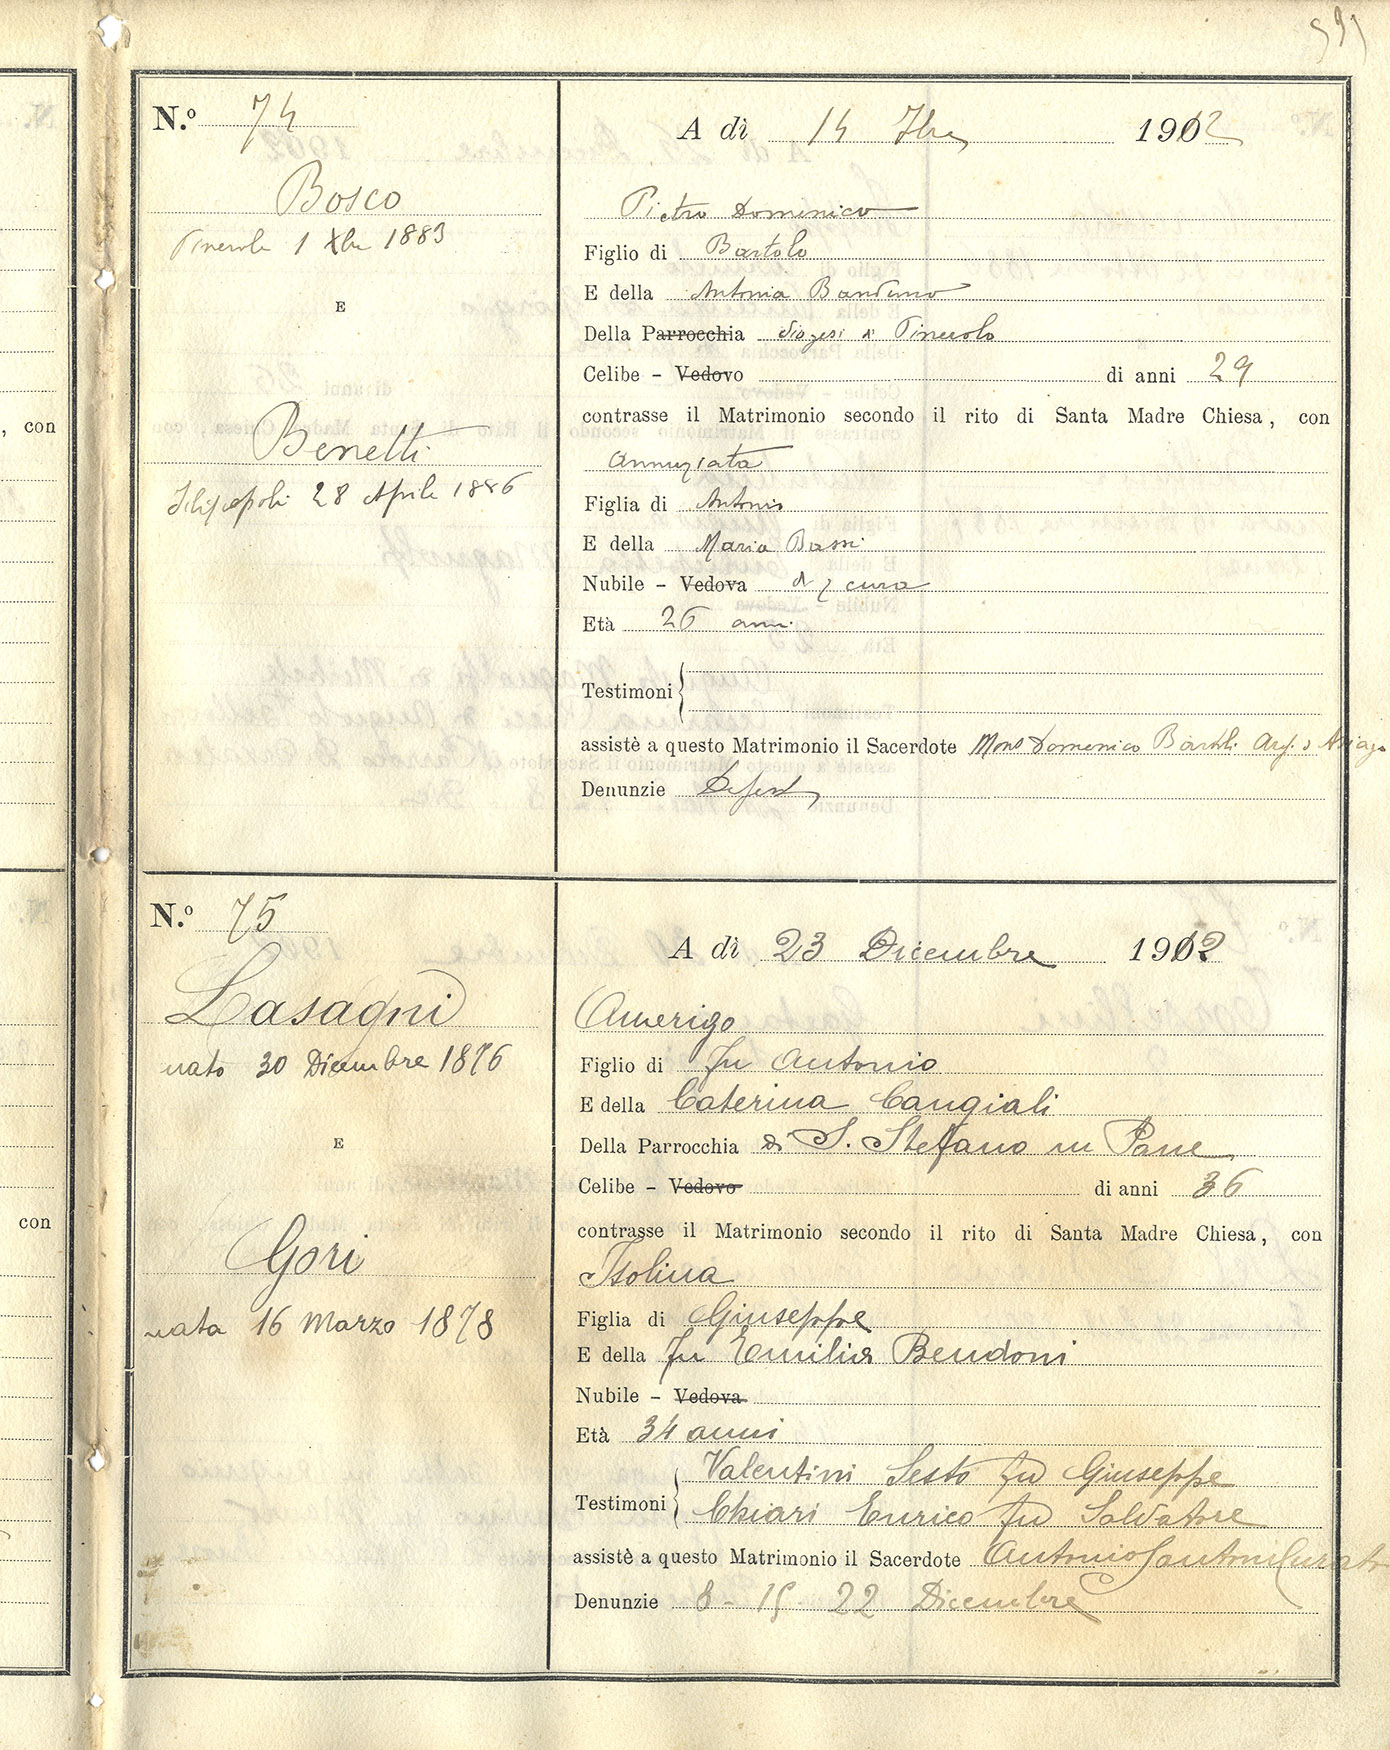 N.º 74
A dì 14 7bre 1912
Bosco
Pinerolo 1 Xbre 1883
E
Benetti
28 Aprile 1886
Pietro Domenico
Figlio di Bartolo
E della Antonia
Della Parrocchia diogesi di Pinerolo
Celibe – Vedovo di anni 29
contrasse il Matrimonio secondo il rito di Santa Madre Chiesa, con
Annunziata
Figlia di Antonio
E della Maria Bassi
Nubile – Vedova di q cura
Età 26 anni
Testimoni
assistè a questo Matrimonio il Sacerdote Mons Domenico Bartoli Asiago
Denunzie
, con
N.º 75
A dì 23 Dicembre 1912
Lasagni
nato 30 Dicembre 1876
E
Gori
nata 16 Marzo 1878
Amerigo
Figlio di fu Antonio
E della Caterina Cangiali
Della Parrocchia di S. Stefano in Pane
Celibe – Vedovo di anni 36
contrasse il Matrimonio secondo il rito di Santa Madre Chiesa, con
Isolina
Figlia di Giuseppe
E della fu Emilia Bendoni
Nubile – Vedova
Età 34 anni
Testimoni Valentini Sesto fu Giuseppe
Chiari Enrico fu Salvatore
assistè a questo Matrimonio il Sacerdote Antonio Santoni Curato
Denunzie 8 - 15 - 22 Dicembre
con